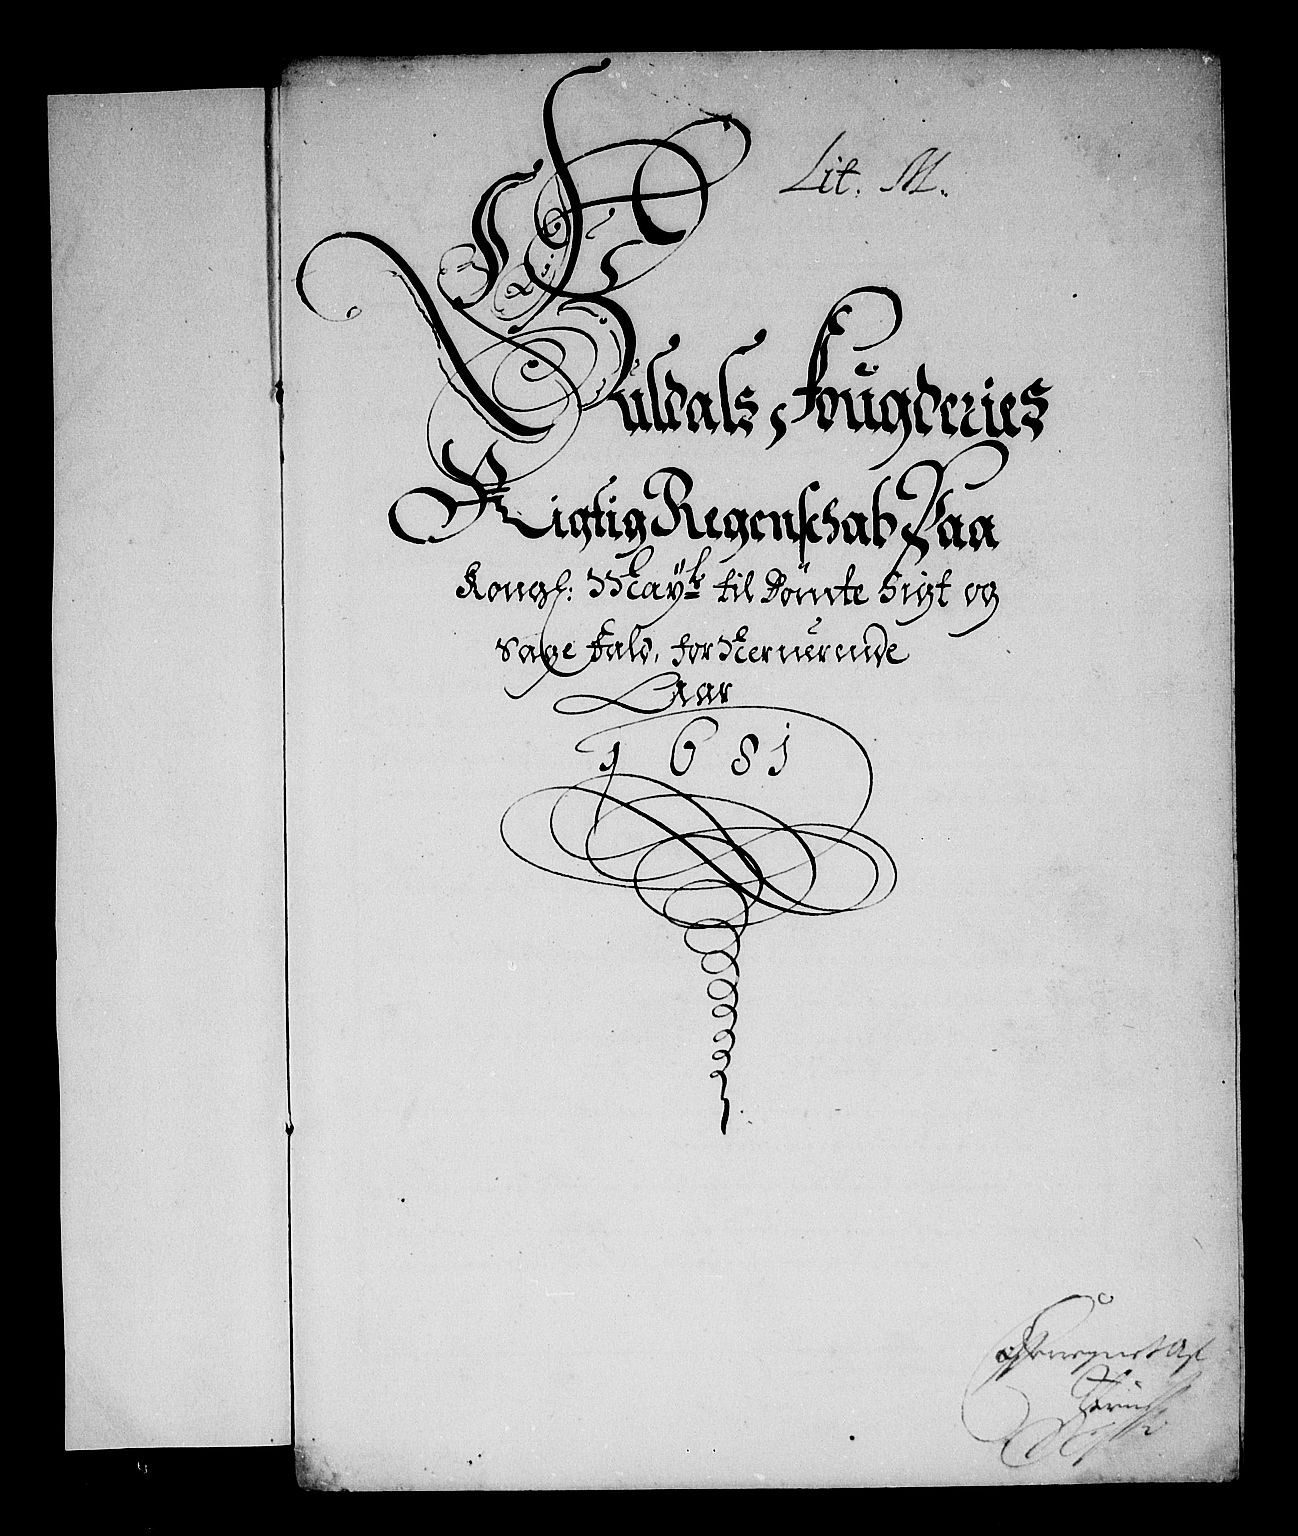 Lit. M.
Buskeruds Fougderies
Rigtig Regenschab Paa
Kongl: Mayt til Dömte Sigt og
Sage Fald, for Nerverende
Aar
1681